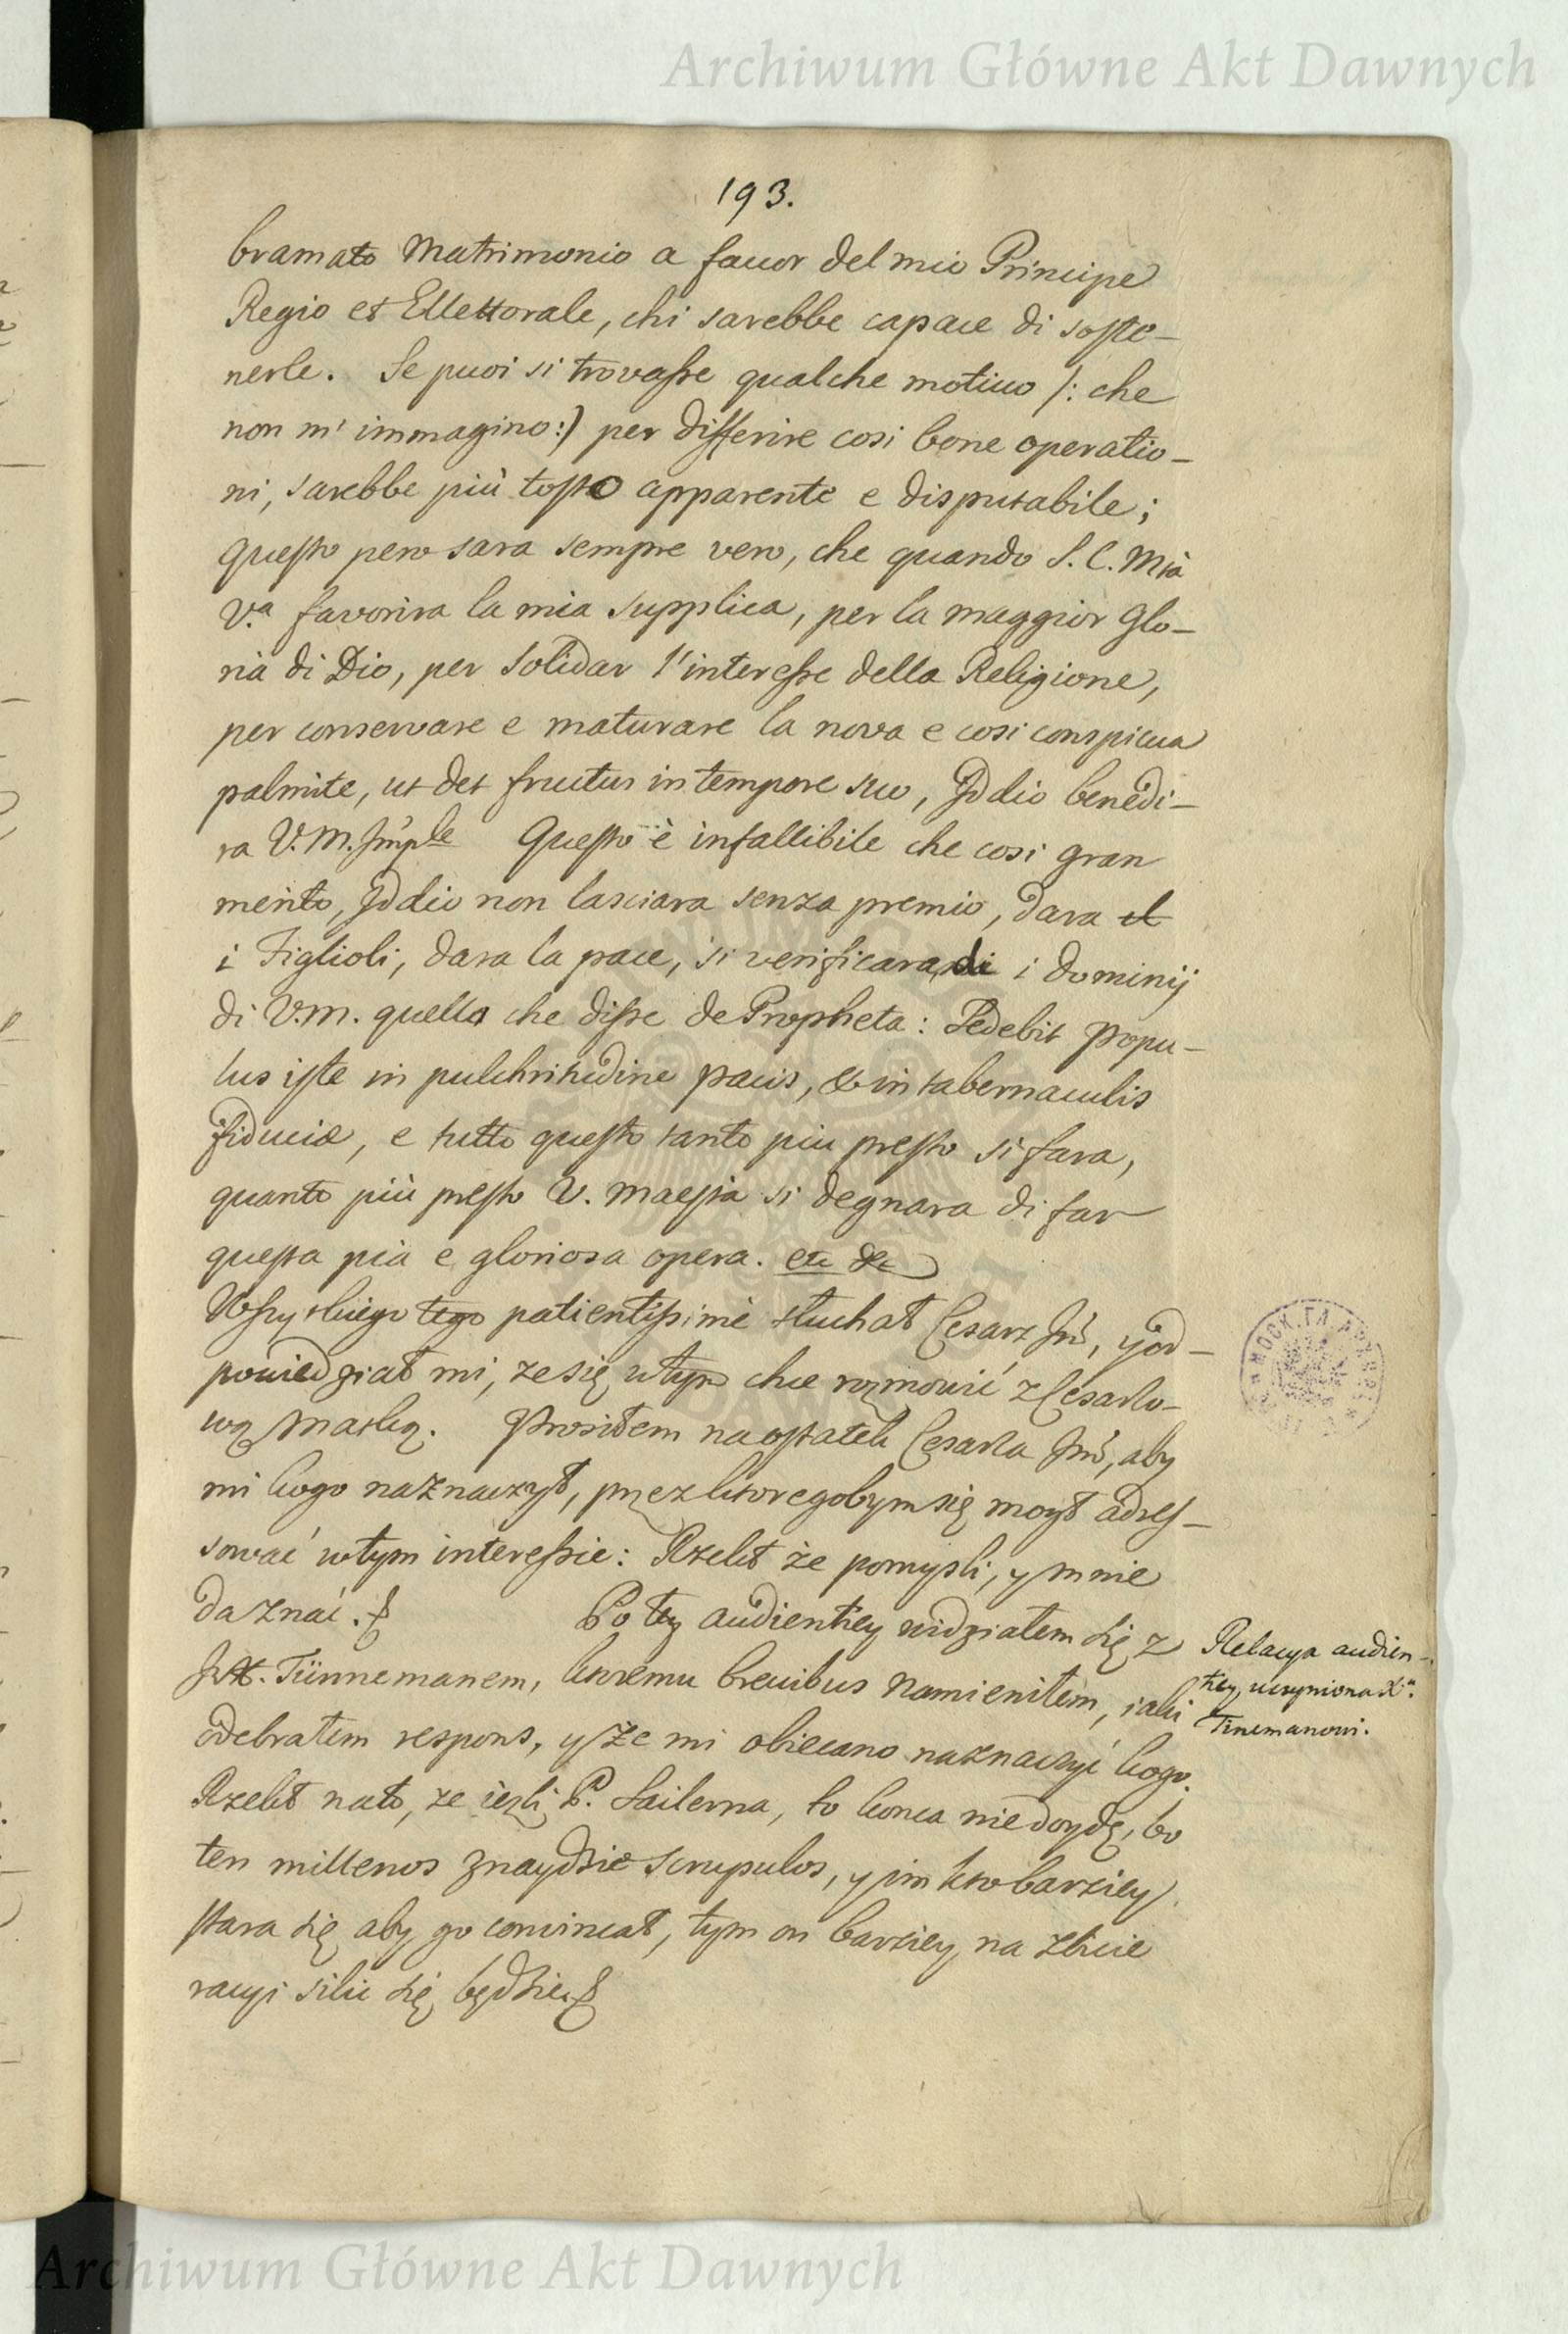 Archiwum Główne Akt Dawnych
193.
bramato Matrimonio a fauor del mio Principe
Regio et Ellettorale, chi sarebbe capace di soste-
nerle. Se puoi si trovasse qualche motiuo /: che
non m' immagino:) per differire cosi bone operatio-
ni, sarebbe più tosto apparente e disputabile;
questo pero sara sempre vero, che quando S. C. Mtà
V.a favorira la mia supplica, per la maggior Glo-
ria di Dio, per solidar l'interesse della Religione,
per conservare e maturare la nova e cosi conspicua
palmite, ut det fructus in tempore suo, Iddio benedi-
ra V. M. Imple Questo è infallibile che cosi gran
merito, Iddio non lasciara senza premio, dara el
i Figlioli, dara la pace, si verificara di i dominij
di V. M. quello che disse de Propheta: Sedebit popu-
lus iste in pulchritudine pacis, & in tabernaculis
fiduciæ, e tutto questo tanto piu presto si fara,
quanto più presto V. Maesta si degnara di far
questa pia e gloriosa opera. etc
Wszystkiego tego patientissime słuchał Cesarz Jmć, y od-
powiedział mi, ze się w tym chce rozmowić z Cesarzo-
wą Matką. Prosiłem na ostatek Cesarza Jmć, aby
mi kogo naznaczył, przez ktoregobym się mogł adres-
sować w tym interessie: Rzekł że pomysli, y mnie
da znać. Po tey audientiey widziałem się z
JX. Tünnemanem, ktoremu brevibus namieniłem, iaki
odebrałem respons, y że mi obiecano naznaczyć kogo.
Rzekł na to, ze iezli P. Sailerna, to konca nie doydę, bo
ten millenos znaydzie scrupulos, y im kto barziey
stara się aby go convincał, tym on barziey na zbicie
racyi silić się będzie.
Relacya audien-
tiey uczyniona X.
Tinemanowi.
Archiwum Główne Akt Dawnych